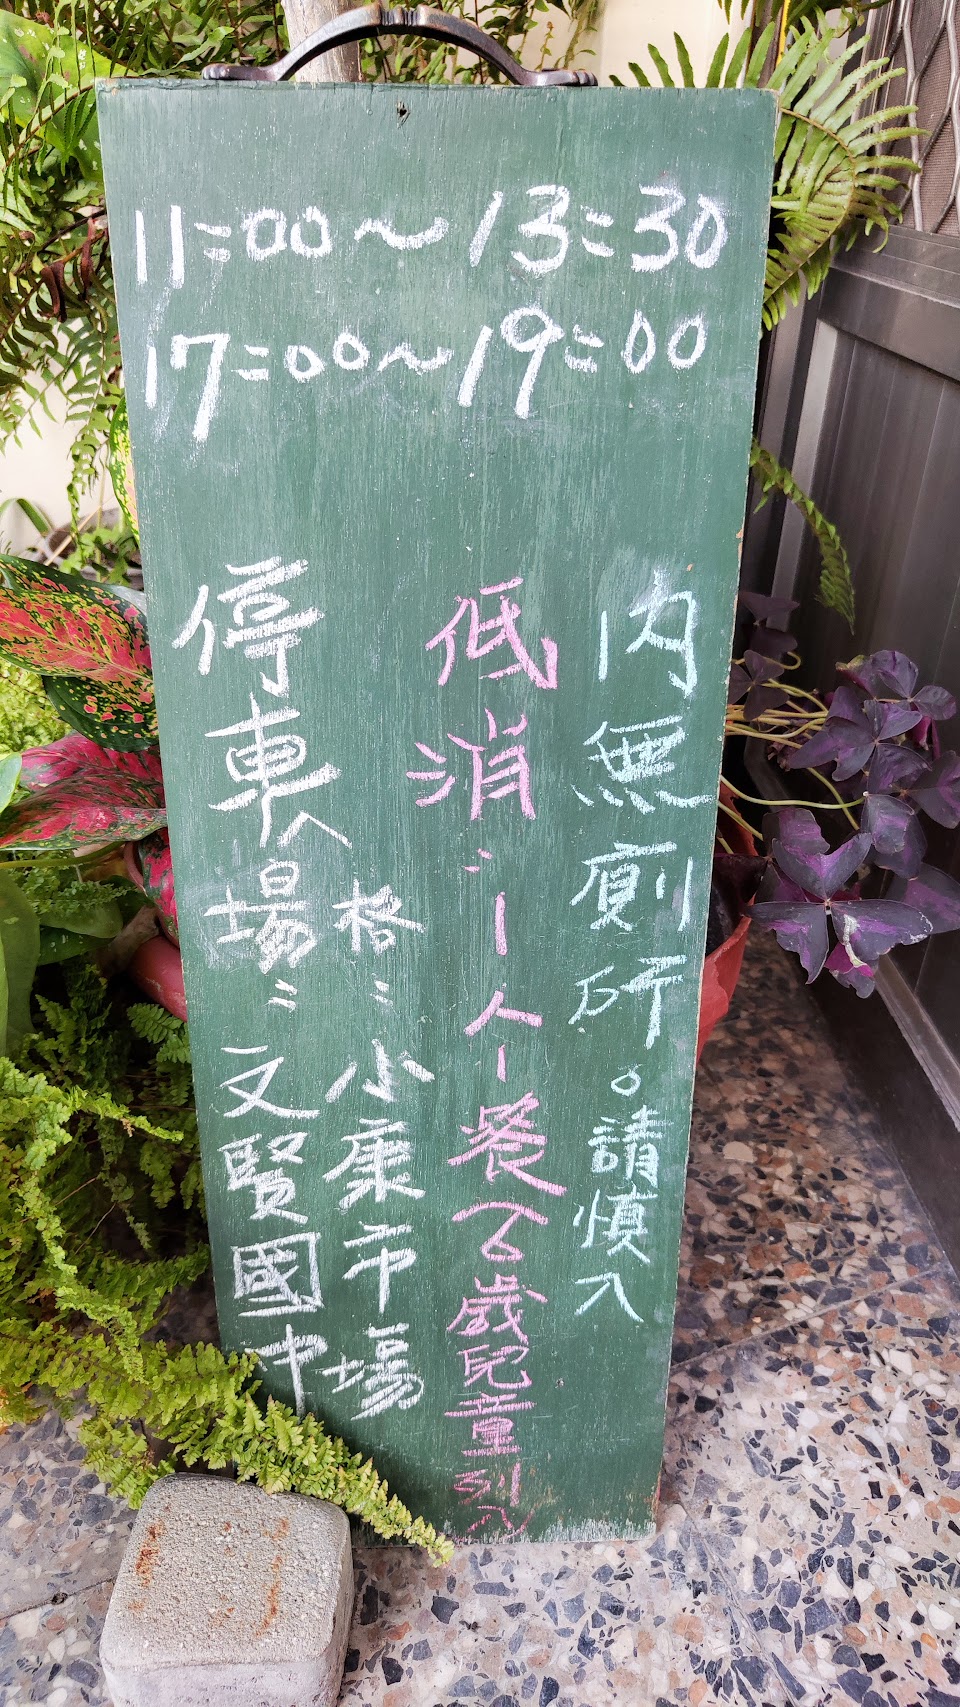 11:00～13:30
17:00～19:00
內無廁所。請慎入
低消:1人1餐(6歲兒童列入)
停車格:小康市場
場:文賢國中